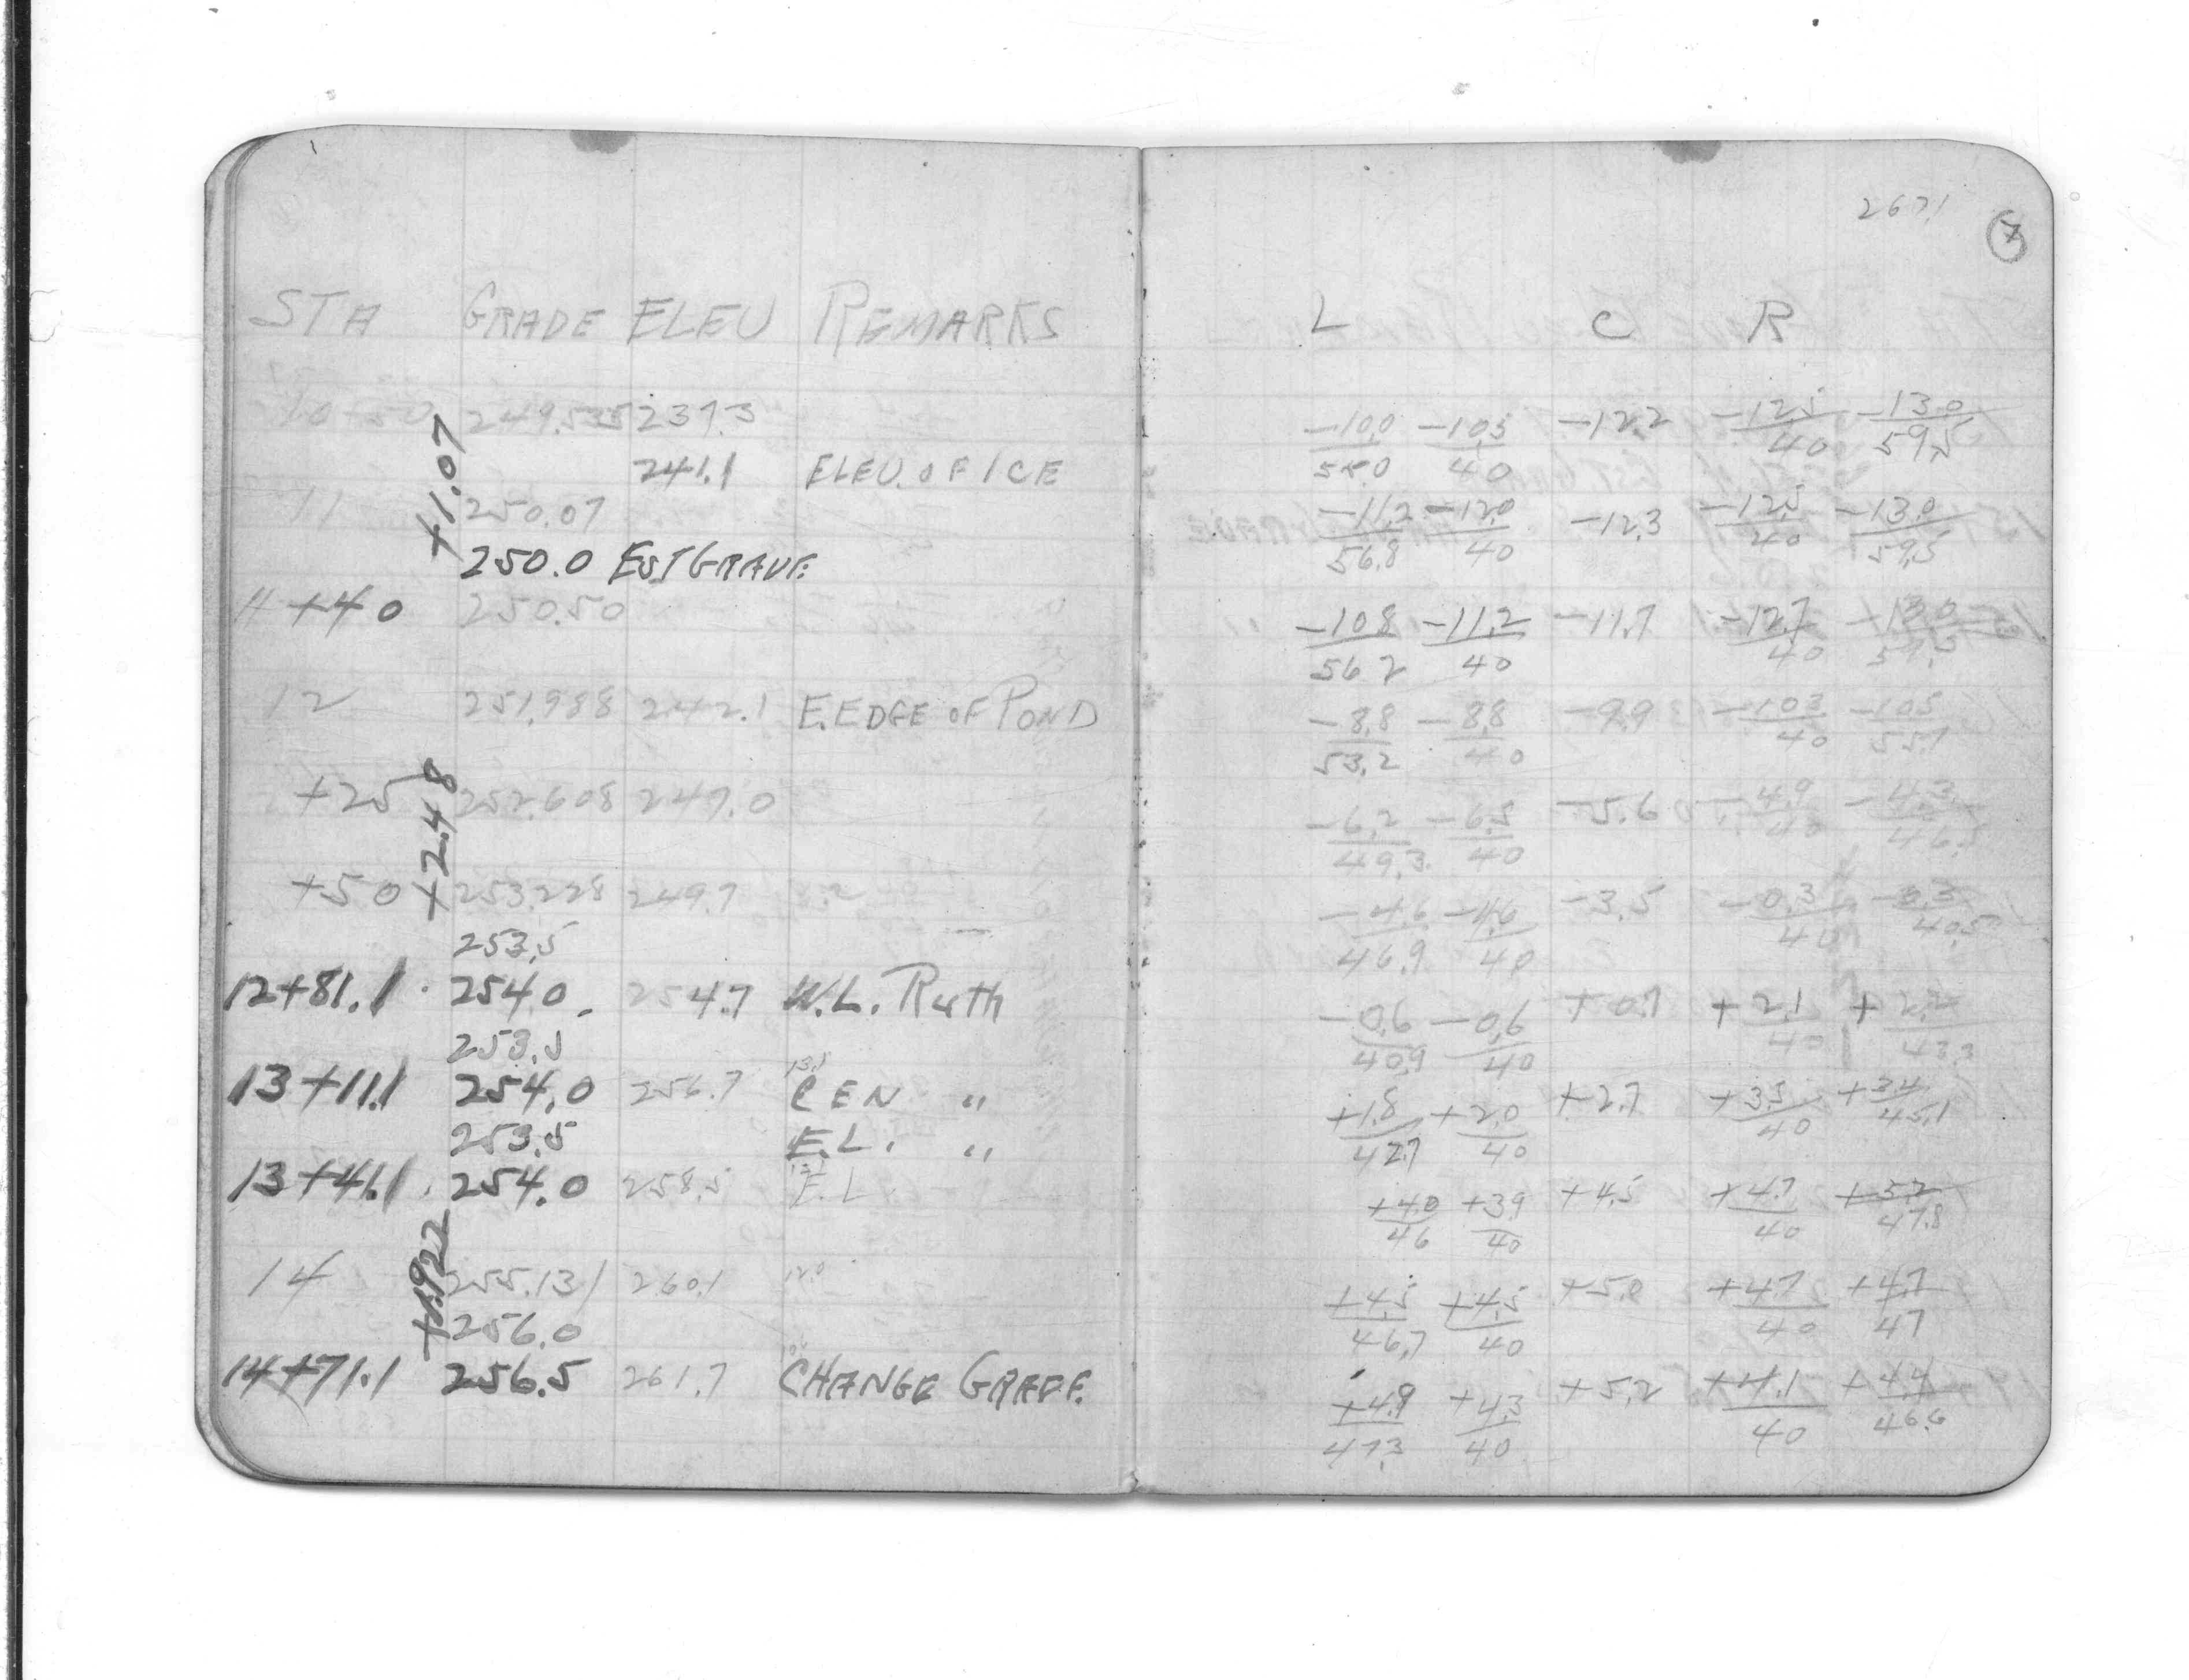 267.1
7
STA GRADE ELEV REMARKS
L C R
10+50 249.535 237.3
-10.0 -10.5 -12.2 -12.5 -13.0
55.0 40 40 59.5
241.1 ELEV. OF ICE
+1.07
11 250.07
-11.2 -12.0 -12.3 -12.5 -13.0
56.8 40 40 59.5
250.0 EST GRADE
11+40 250.50
-10.8 -11.2 -11.7 -12.7 -13.0
56.2 40 40 59.5
12 251.988 242.1 E. EDGE OF POND
-8.8 -8.8 -9.9 -10.3 -10.5
53.2 40 40 55.1
+2.48
+25 252.608 247.0
-6.2 -6.5 -5.6 -4.9 -4.3
49.3 40 40 46.5
+50 253.228 249.7
-4.6 -4.6 -3.5 -0.3 -0.3
46.9 40 40 40.5
253.5
12+81.1 254.0 254.7 W.L. Ruth
-0.6 -0.6 +0.7 +2.1 +2.2
40.9 40 40 43.3
253.5
13.1
13+11.1 254.0 256.7 CEN "
+1.8 +2.0 +2.7 +3.5 +3.4
42.7 40 40 45.1
253.5 E.L. "
13+41.1 254.0 258.5 E.L.
+4.0 +3.9 +4.5 +4.7 +5.2
46 40 40 47.8
+1.922
14 255.131 260.1 12.0
+4.5 +4.5 +5.0 +4.7 +4.7
46.7 40 40 47
256.0
14+71.1 256.5 261.7 CHANGE GRADE
+4.9 +4.3 +5.2 +4.1 +4.4
47.3 40 40 46.6